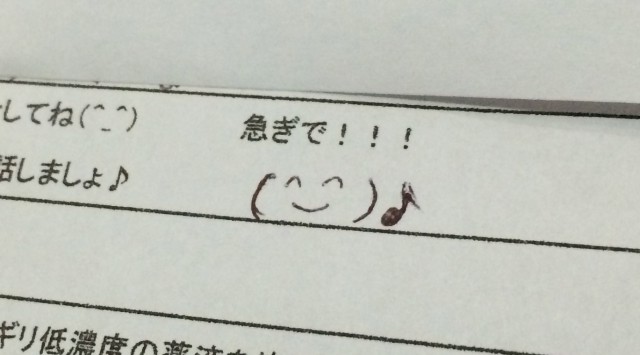 してね(^_^)
急ぎで！！！
話しましょ♪
(^‿^)♪
ギリ低濃度の薬液を